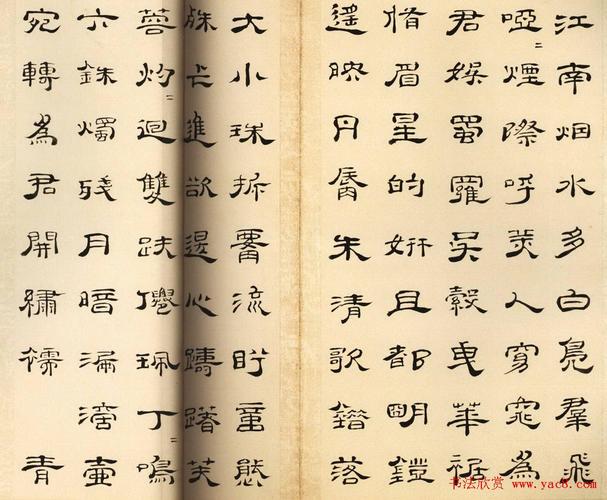 江南烟水多白鳧羣飛
啞〻煙際呼美人窈窕為
君娛蜀羅吳縠曳華裾
脩眉星的妍且都明鐺
遥映丹脣朱清歌錯落
大小珠流盻態
殊進欲退心躊躇芙
蓉灼〻迴雙趺珮丁〻鳴
六銖燭殘月暗漏滴壺
宛轉為君開繡襦 青
书法欣赏 www.yac8.com